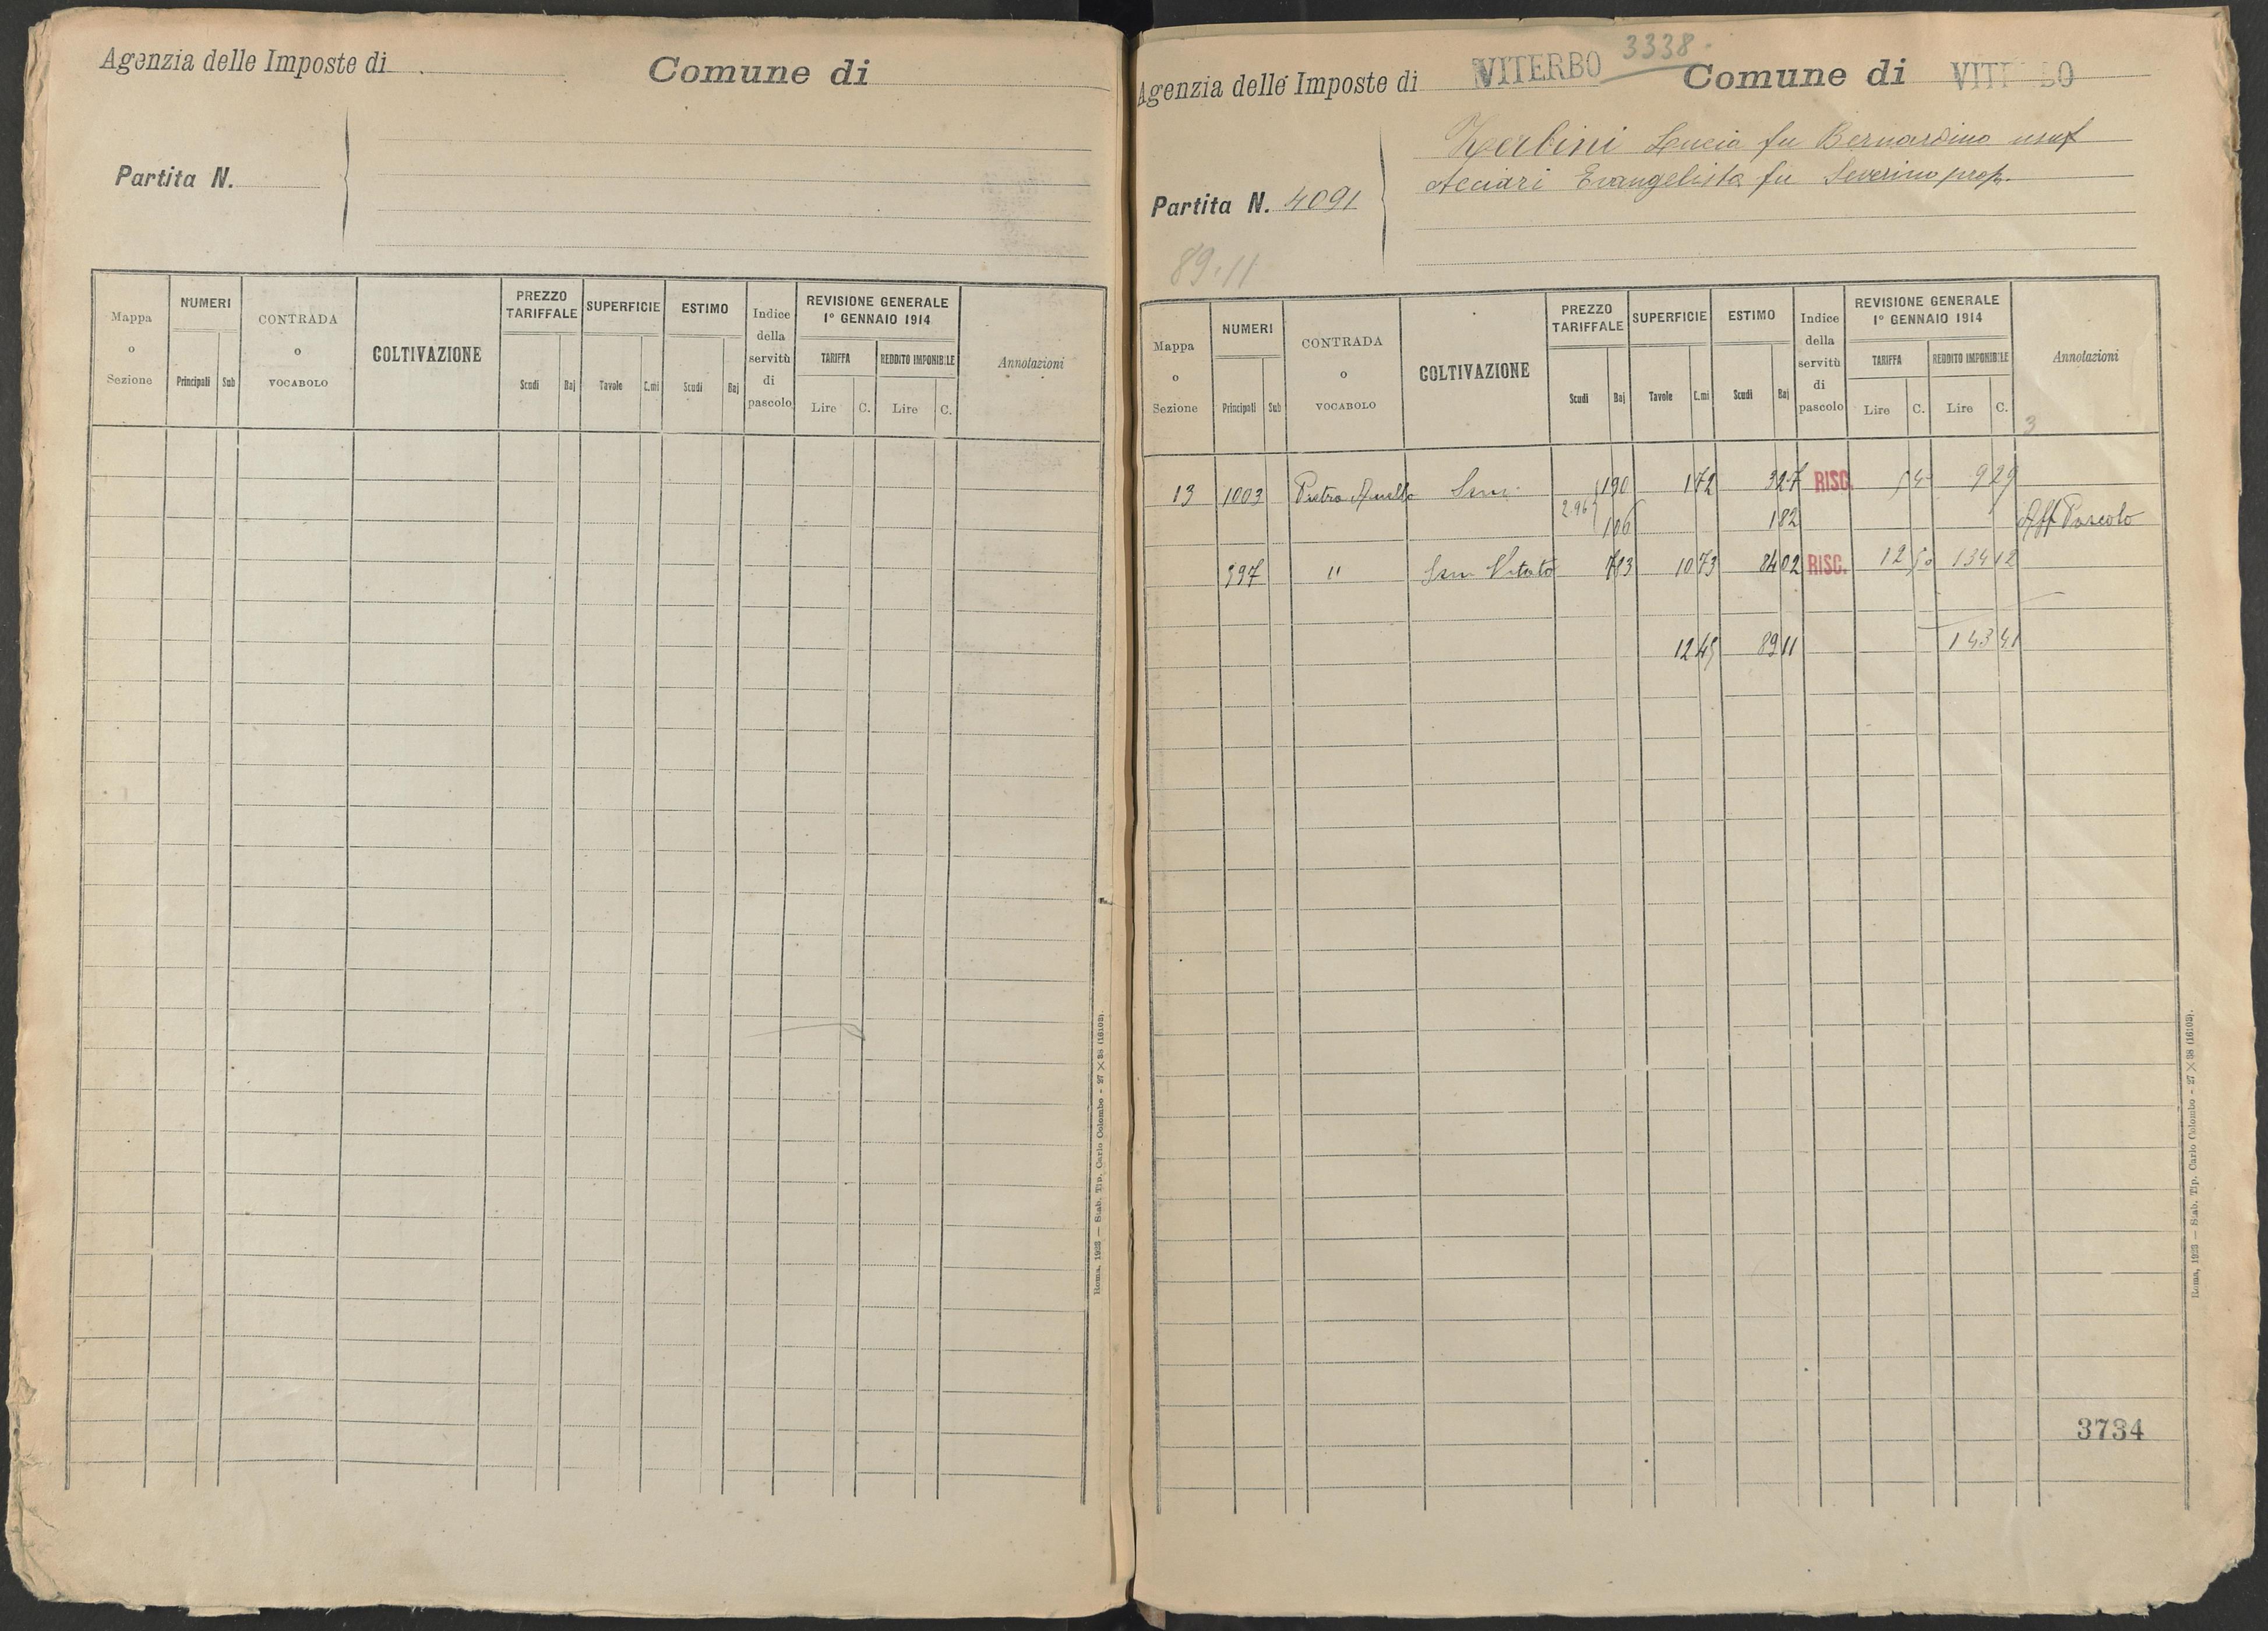 Agenzia delle Imposte di
Comune di
Partita N.
Mappa o Sezione
NUMERI
Principali Sub
CONTRADA o VOCABOLO
COLTIVAZIONE
PREZZO TARIFFALE
Scudi Baj
SUPERFICIE
Tavole C.mi
ESTIMO
Scudi Baj
Indice della servitù di pascolo
REVISIONE GENERALE
1º GENNAIO 1914
TARIFFA
Lire C.
REDDITO IMPONIBILE
Lire C.
Annotazioni
Roma, 1923 — Stab. Tip. Carlo Colombo - 27 × 38 (16103).
3338
Agenzia delle Imposte di VITERBO
Comune di VIT BO
Zerbini Lucia fu Bernardino usuf
Acciari Evangelista fu Severino prop.
Partita N. 4091
89.11
Mappa o Sezione
NUMERI
Principali Sub
CONTRADA o VOCABOLO
COLTIVAZIONE
PREZZO TARIFFALE
Scudi Baj
SUPERFICIE
Tavole C.mi
ESTIMO
Scudi Baj
Indice della servitù di pascolo
REVISIONE GENERALE
1º GENNAIO 1914
TARIFFA
Lire C.
REDDITO IMPONIBILE
Lire C.
Annotazioni
3
13 1003 Pietro Sem. 190 1 72 3 27 RISC. 54 9 29
2.96 106 1 82 Aff Pascolo
997 " Sem Vitato 783 10 73 84 02 RISC. 12 50 134 12
12 45 89 11 143 41
3734
Roma, 1923 — Stab. Tip. Carlo Colombo - 27 × 38 (16103).